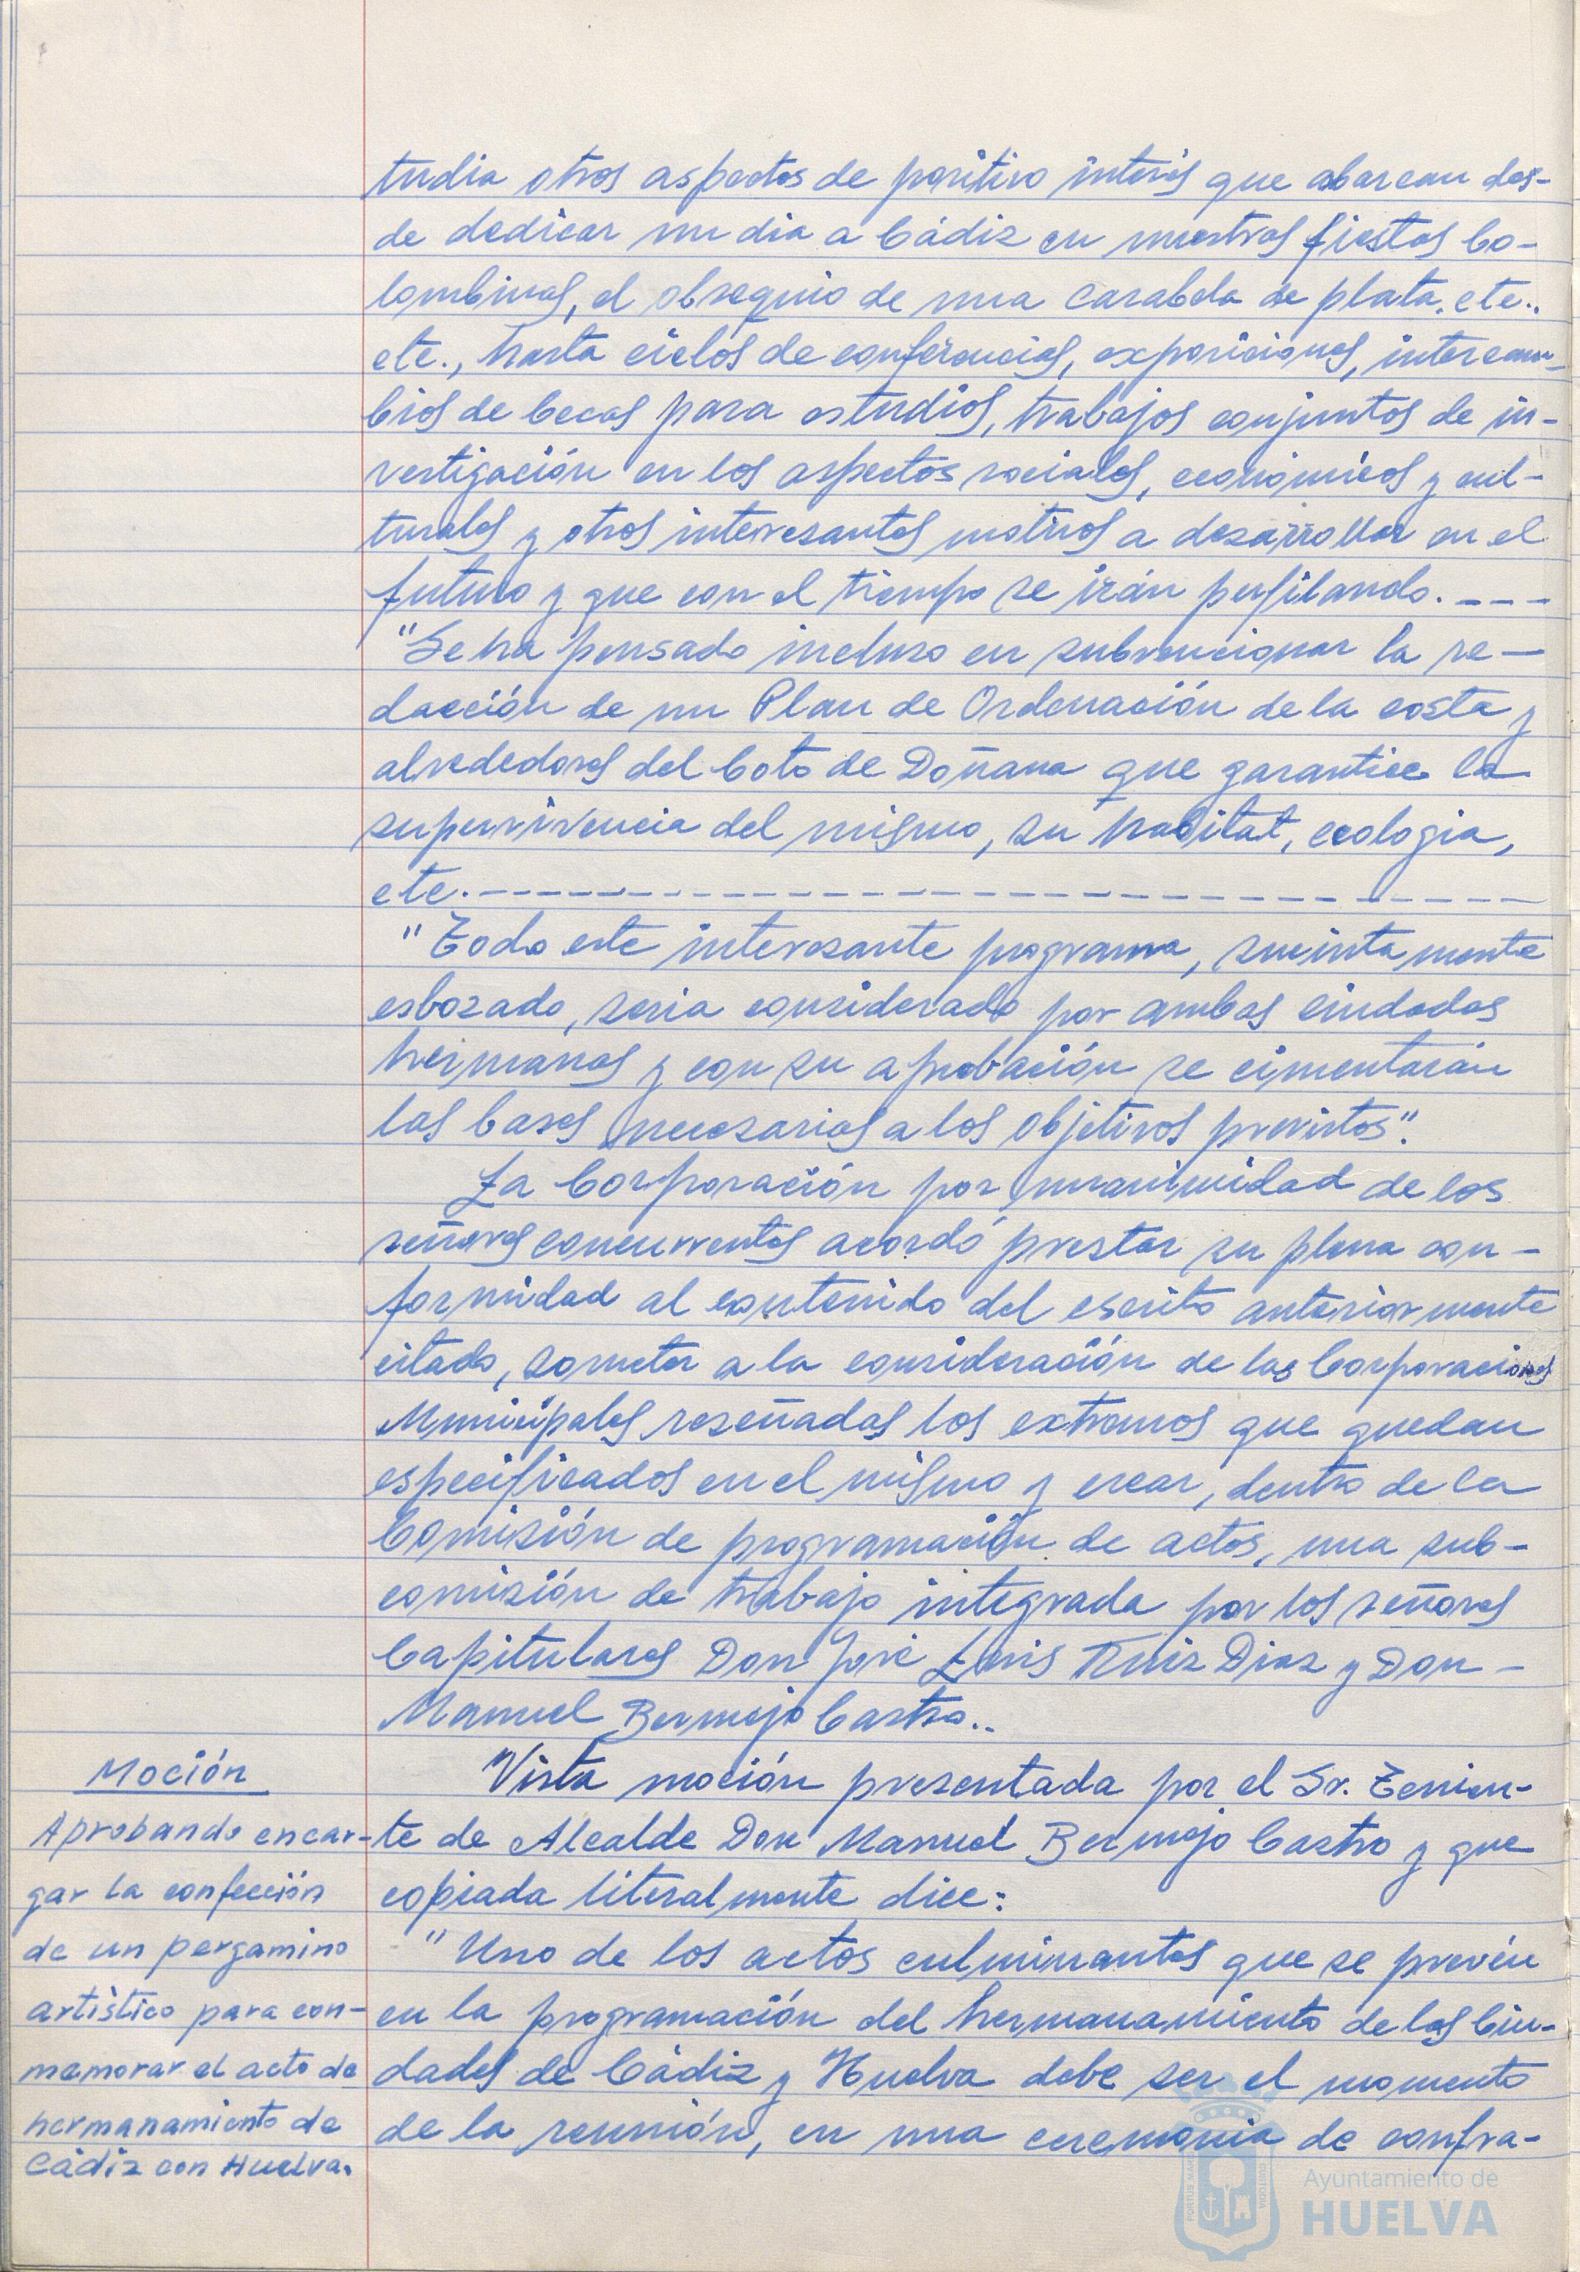 tudia otros aspectos de positivo interés que abarcan des-
de dedicar un dia a Cádiz en nuestras fiestas Co-
lombinas, el obsequio de una carabela de plata, etc.,
etc., hasta ciclos de conferencias, exposiciones, intercam-
bios de becas para estudios, trabajos conjuntos de in-
vestigación en los aspectos sociales, económicos y cul-
turales y otros interesantes motivos a desarrollar en el
futuro y que con el tiempo se irán perfilando. ---
"Se ha pensado incluso en subvencionar la re-
dacción de un Plan de Ordenación de la costa y
alrededores del Coto de Doñana que garantice la
supervivencia del mismo, su habitat, ecologia,
etc.---
"Todo este interesante programa, sucintamente
esbozado, seria considerado por ambas ciudades
hermanas y con su aprobación se cimentarán
las bases necesarias a los objetivos previstos".
La Corporación por unanimidad de los
señores concurrentes acordó prestar su plena con-
formidad al contenido del escrito anteriormente
citado, someter a la consideración de las Corporaciones
Municipales reseñadas los extremos que quedan
especificados en el mismo y crear, dentro de la
Comisión de programación de actos, una sub-
comisión de trabajo integrada por los señores
Capitulares Don José Luis Ruiz Diaz y Don-
Manuel Bermejo Castro..
Moción
Aprobando encar-
gar la confección
de un pergamino
artístico para con-
memorar el acto de
hermanamiento de
Cádiz con Huelva.
Vista moción presentada por el Sr. Tenien-
te de Alcalde Don Manuel Bermejo Castro y que
copiada literalmente dice:
"Uno de los actos culminantes que se prevén
en la programación del hermanamiento de las Ciu-
dades de Cádiz y Huelva debe ser el momento
de la reunión, en una ceremonia de confra-
Ayuntamiento de
HUELVA